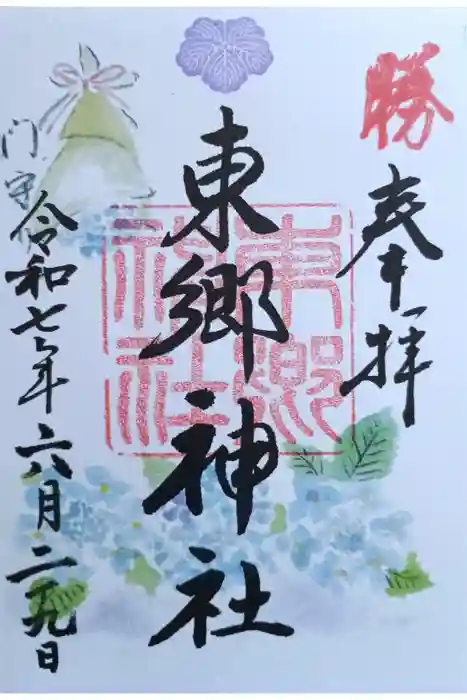 勝
奉拝
東郷神社
東郷神社
令和七年六月二十九日
門守